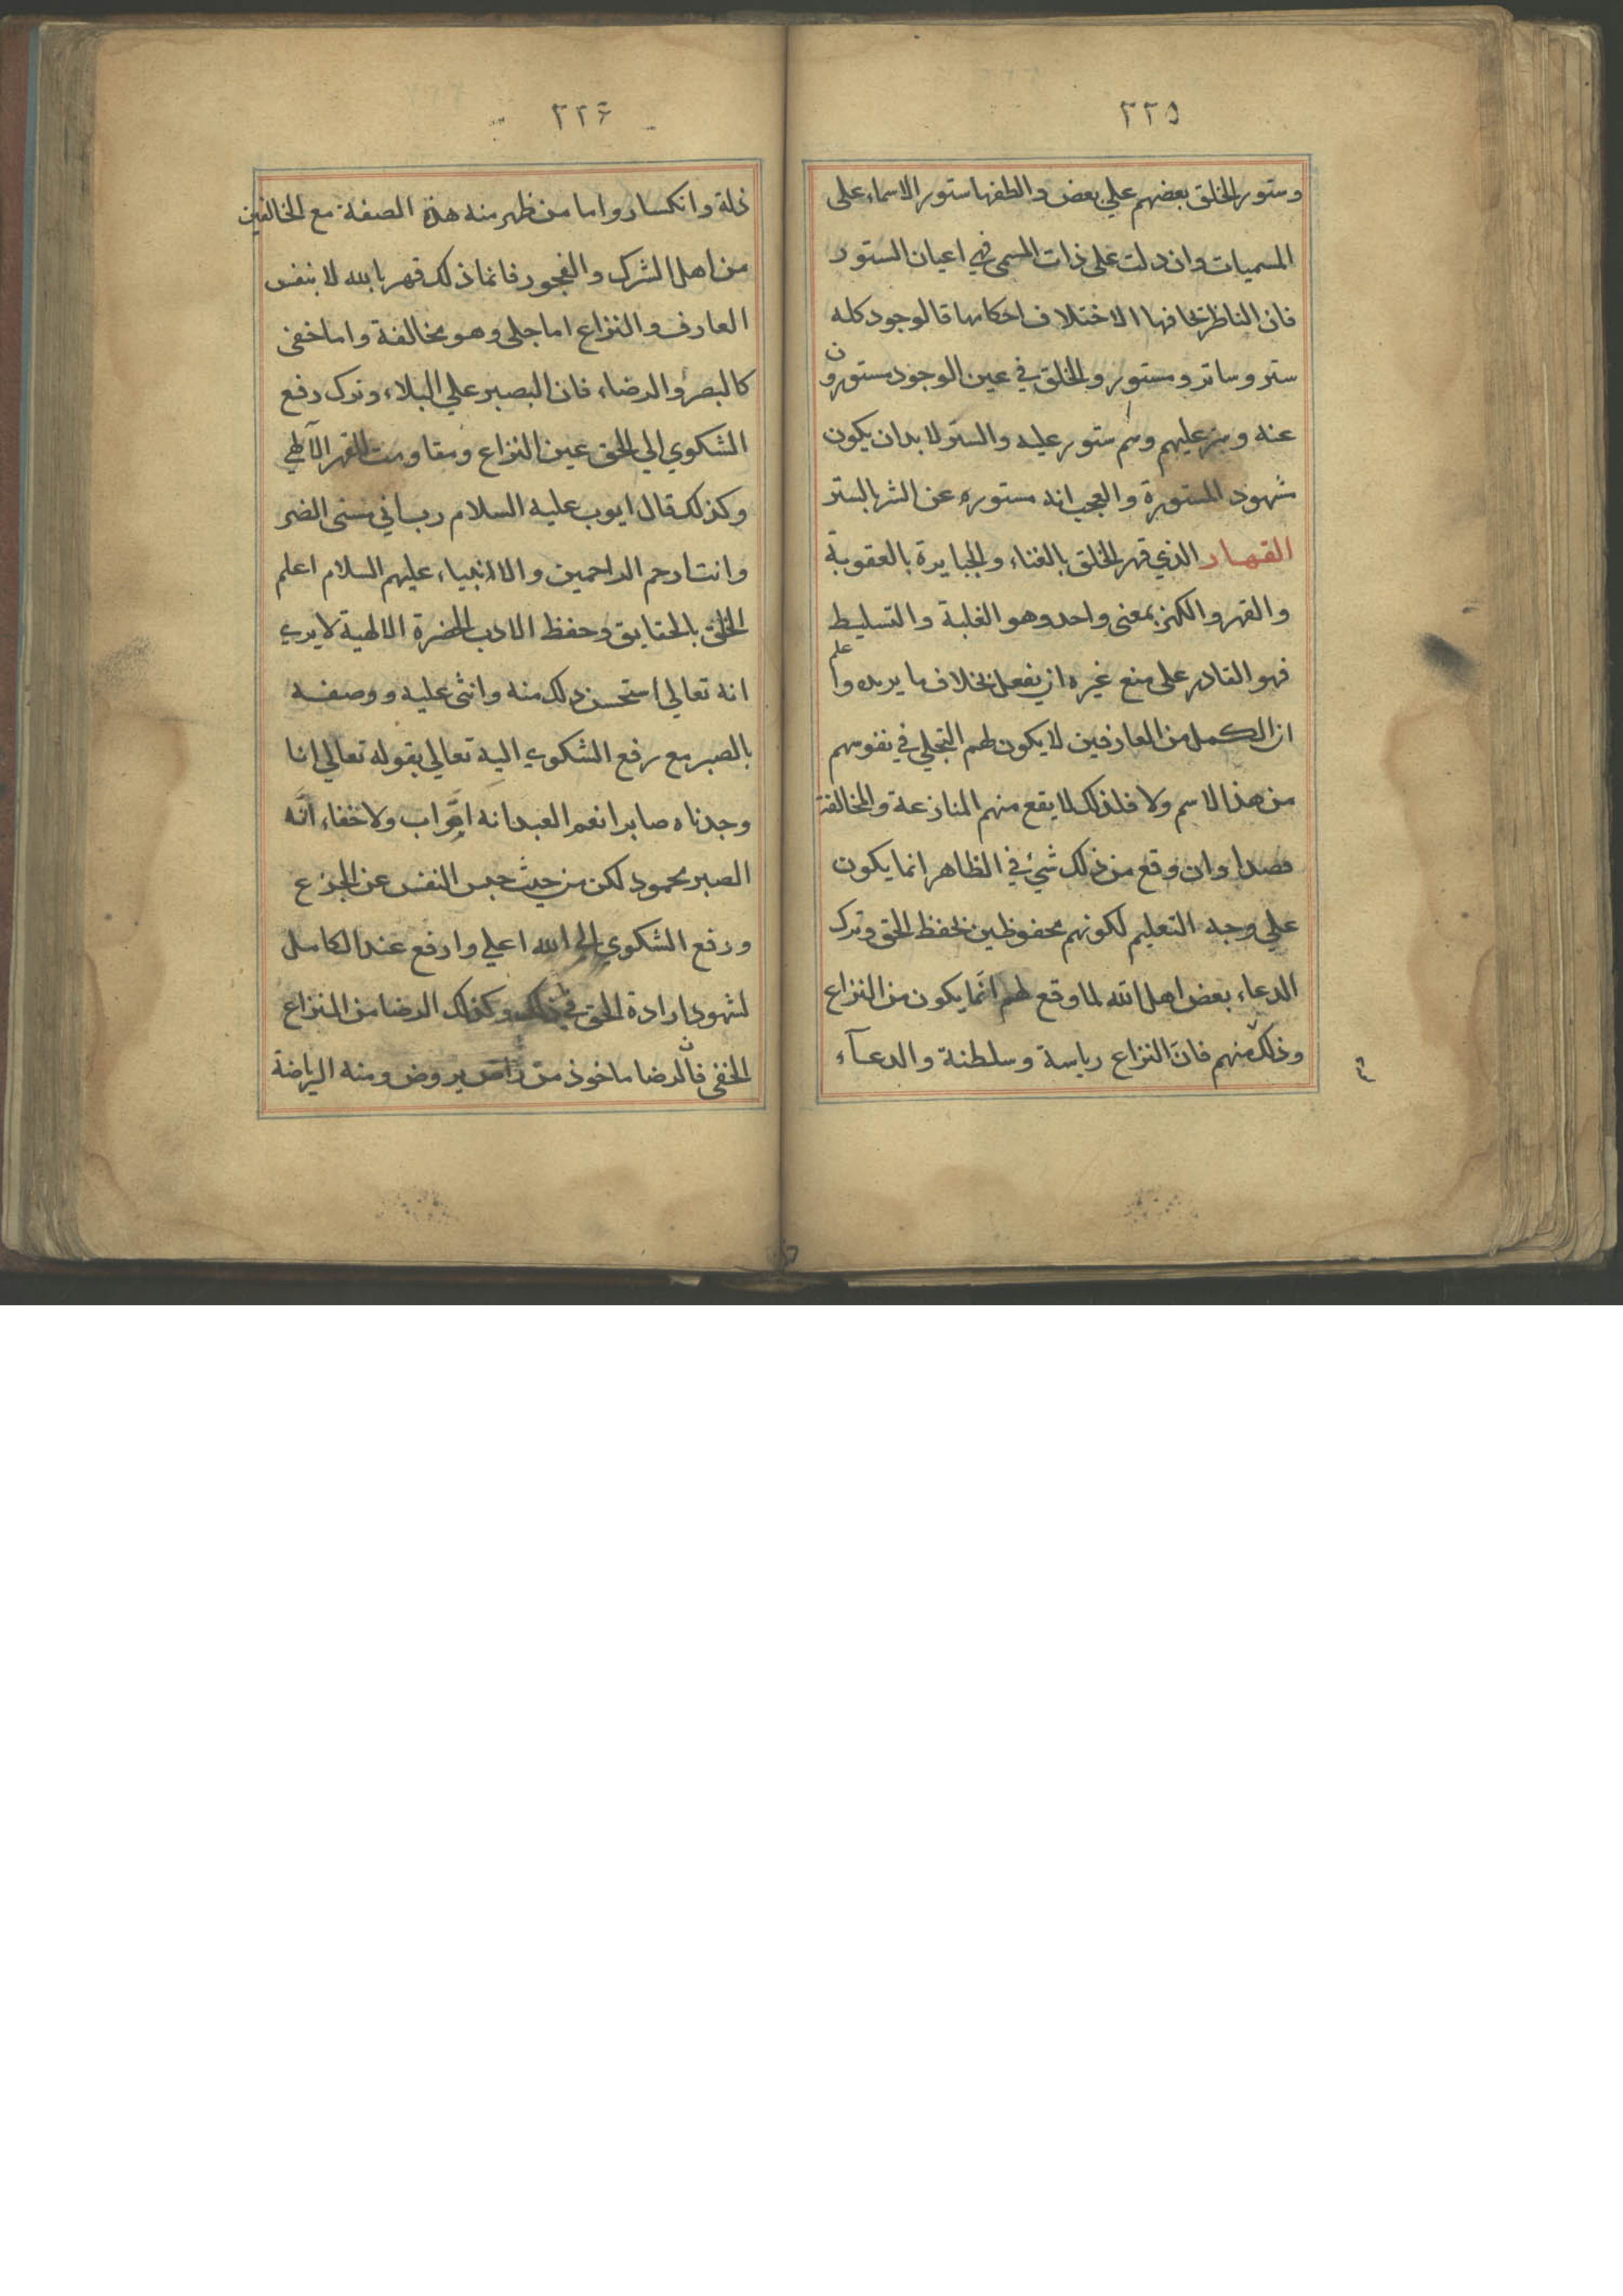 ٢٢٥
وستور الخلق بعضهم علي بعض والطفها ستور الاسماء على
المسميات وان دلت على ذات المسمى فهي اعيان الستور
فان الناظر تخافها الاختلاف احكامها قالوجود كله
ستر وساتر ومستور والخلق في عين الوجود مستورون
عنه وستر عليهم وسم ستور عليه والستر لا بد ان يكون
شهود المستورة والعجب انه مستوره عن الشر بالستر
القهار الذي قهر الخلق بالفناء والجبابرة بالعقوبة
والقهر والكهر بمعنى واحد وهو الغلبة والتسليط
فهو القادر على منع غيره ان يفعل بخلاف ما يريد واعلم
ان الكمل من العارفين لا يكون لهم التجلي في نفوسهم
من هذا الاسم ولا فلذلك لا يقع منهم المنازعة والمخالفة
قصدا وان وقع من ذلك شيئ في الظاهر انما يكون
علي وجه التعليم لكونهم محفوظين بحفظ الحق وترك
الدعاء بعض اهل الله لما وقع لهم انما يكون من النزاع
وذلك منهم فان النزاع رياسة وسلطنة والدعآء
٢٢٦
ذلة وانكسار واما من ظهر منه هذه الصفة مع المخالفين
من اهل الشرك والفجور فانما ذلك قهر بالله لا بنفس
العارف والنزاع اما جلي وهو مخالفة واما خفي
كالبصر والرضاء فان البصبر علي البلاء وترك رفع
الشكوي الي الحق عين النزاع ومقاومت القهر الآلهي
وكذلك قال ايوب عليه السلام رب اني مسني الضر
وانت ارحم الراحمين والانبياء عليهم السلام اعلم
الخلق بالحقايق وحفظ الادب الحضرة الالهية لا يري
انه تعالي استحسن ذلك منه وانثى عليه ووصفه
بالصبر مع رفع الشكوي اليه تعالي بقوله تعالي انا
وجدناه صابرا نعم العبد انه اوّاب ولا خفاء انّه
الصبر محمود لكن من حيث حبس النفس عن الجزع
ورفع الشكوي الي الله اعلي وارفع عند الكامل
لشهود ارادة الحق في ذلك وكذلك الرضا من النزاع
الخفي فان الرضا ماخوذ من راض يروض ومنه الرياضة